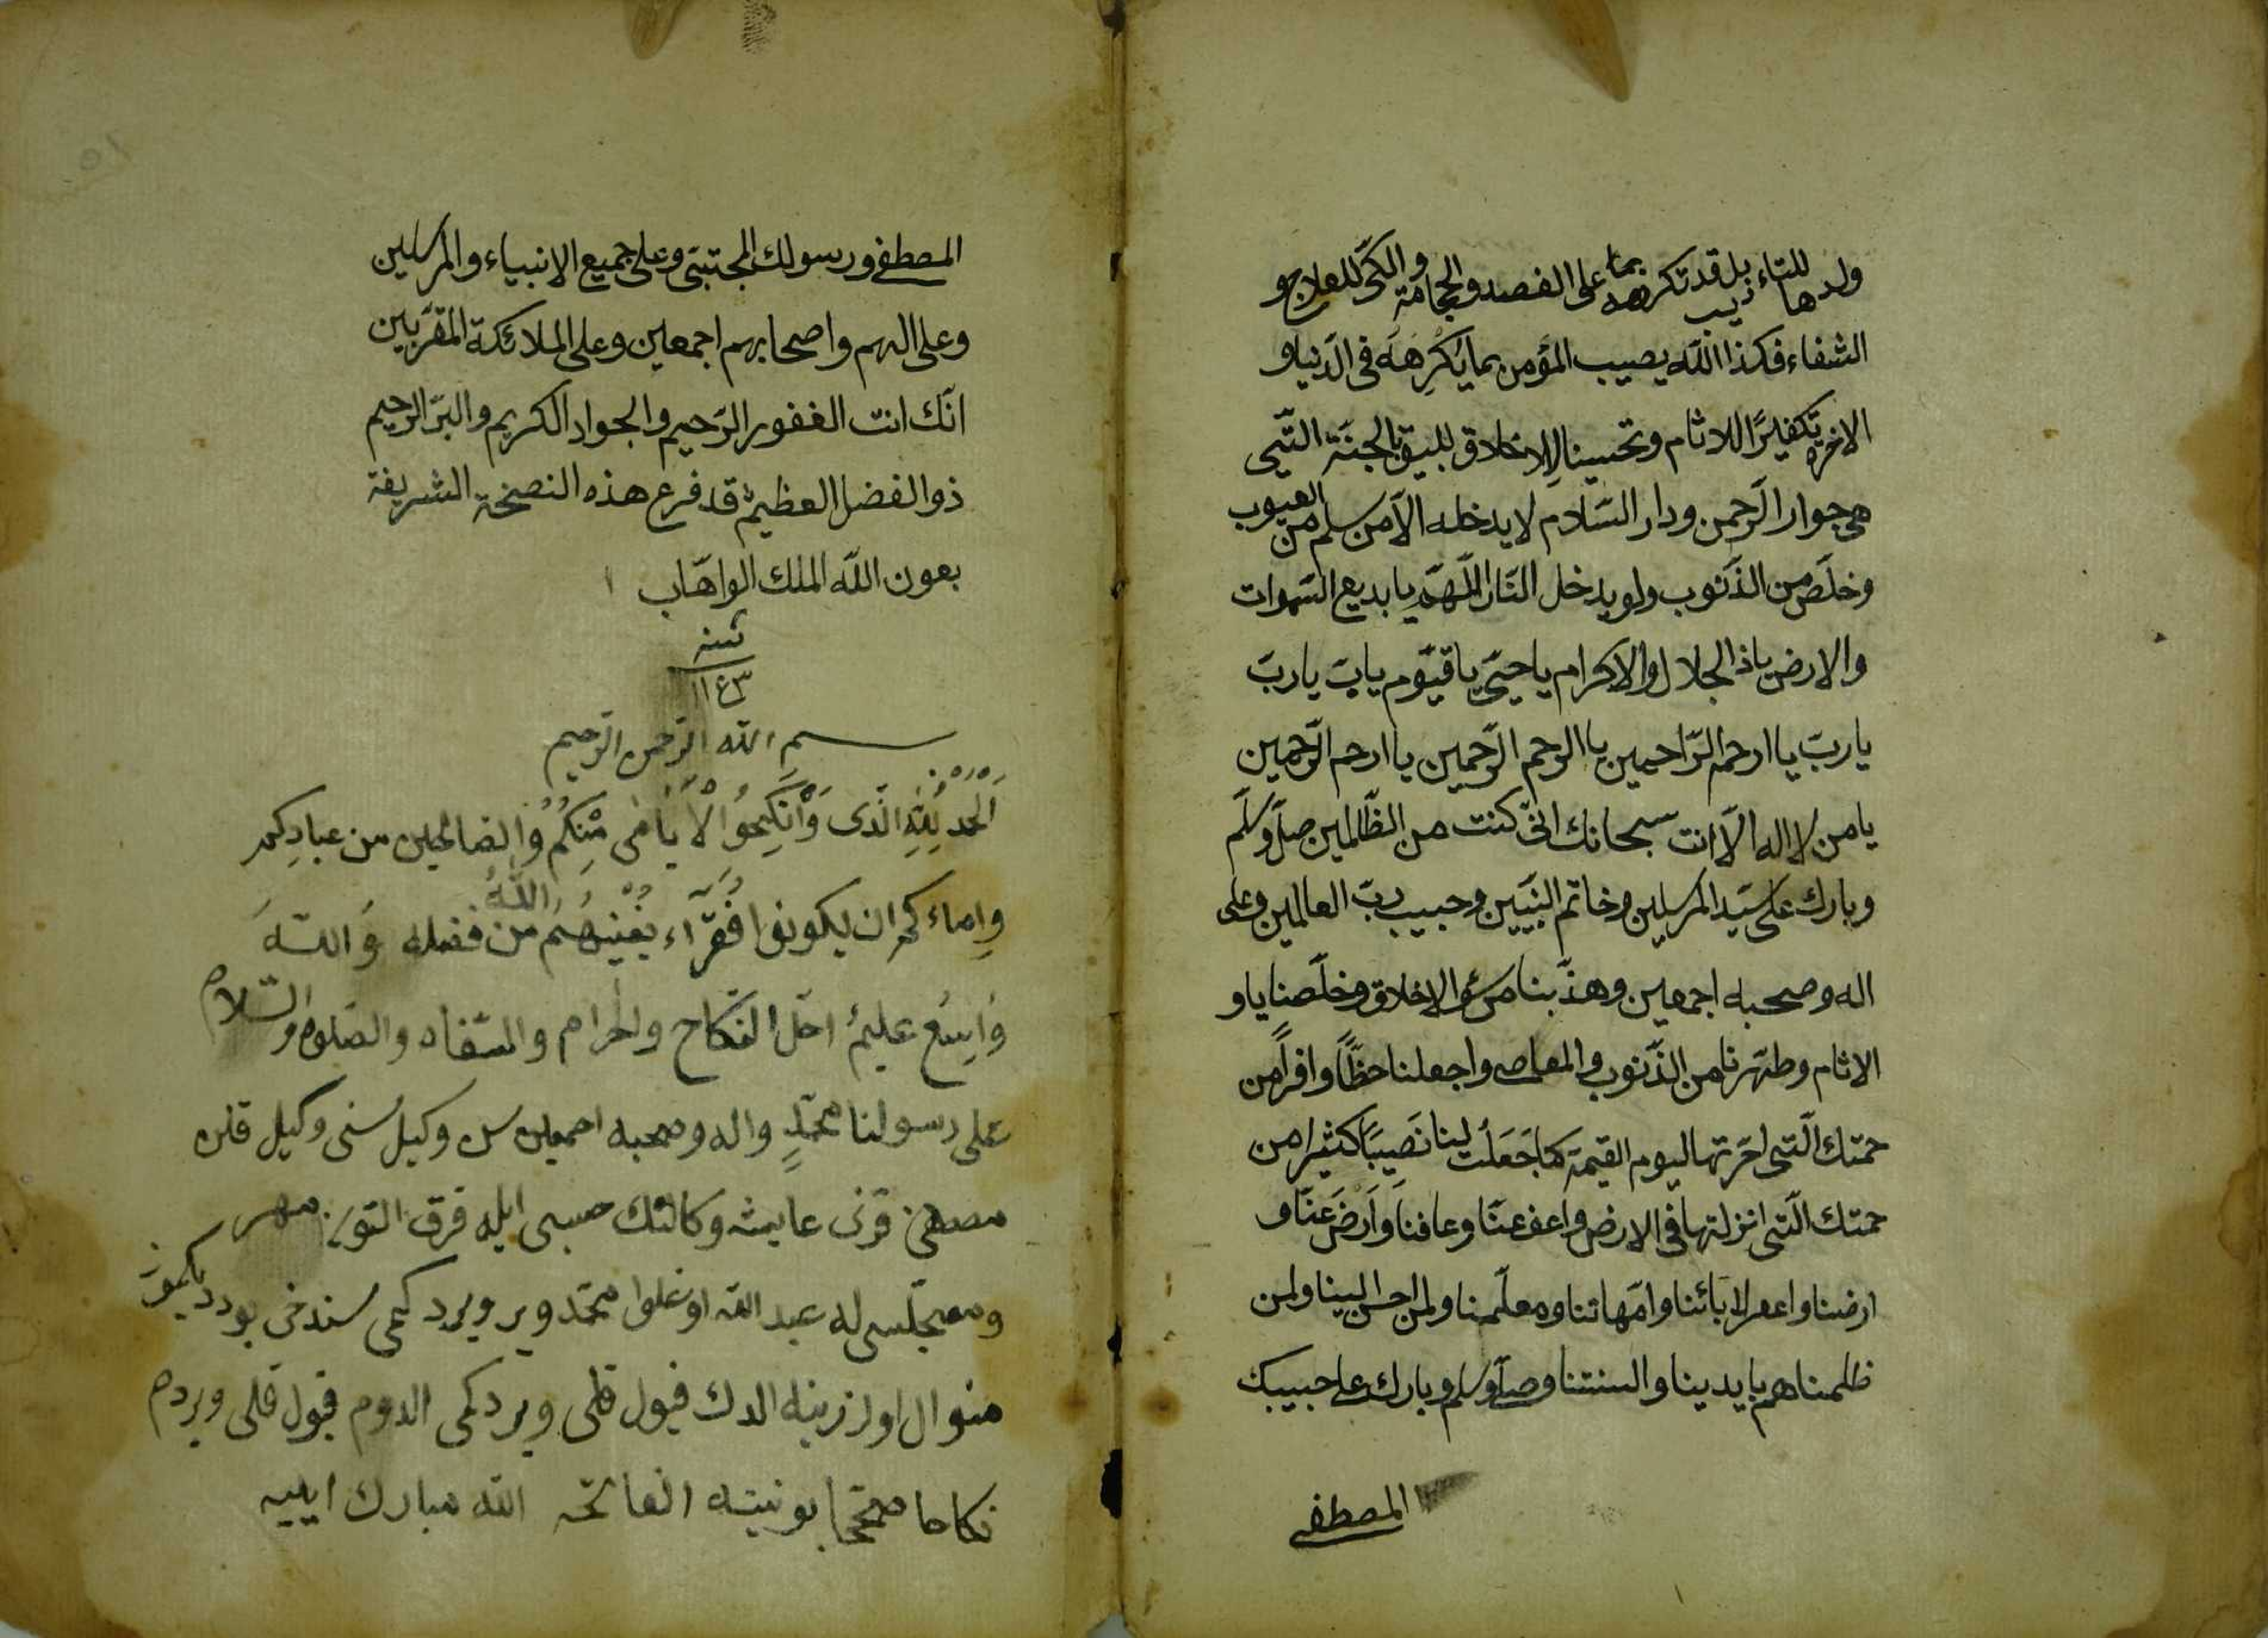 ولدها للتاءديب بل قد تكرهه بما على الفصد والحجامة والكى للعلاج و
الشفاء فكذا الله يصيب المؤمن بما يكرهه فى الدنيا و
الاخرة تكفيرًا للاثام وتحسينا للاخلاق لليق بالجنة التى
هى جوار الرحمن ودار السلام لا يدخله الا من سلم من العيوب
وخلص من الذنوب ولو يدخل النار اللهم يا بديع السموات
والارض ياذا الجلال والاكرام يا حى يا قيوم يارب يارب
يارب يا ارحم الراحمين يا ارحم الرحمين يا ارحم الرحمين
يا من لا اله الا انت سبحانك انى كنت من الظالمين صل وسلم
وبارك على سيد المرسلين وخاتم النبيين وحبيب رب العالمين وعلى
اله وصحبه اجمعين وهذبنا من سؤ الاخلاق وخلصنا يا و
الاثام وطهرنا من الذنوب والمعاصى واجعلنا حظًا وافرًا من
حمتك التى اخرتها ليوم القيمة كما جعلت لنا نصيبًا كثيرا من
حمتك التى انزلتها فى الارض واعف عنا وعافنا وارض عنا و
ارضنا واعفر لابائنا وامهاتنا ومعلمنا ولمن احسن الينا ولمن
ظلمناهم بايدينا والسنتنا وصل وسلم وبارك على حبيبك
المصطفى
المصطفى ورسولك المجتبى وعلى جميع الانبياء والمرسلين
وعلى الهم واصحابهم اجمعين وعلى الملائكة المقربين
انك انت الغفور الرحيم والجواد الكريم والبر الرحيم
ذو الفضل العظيم قد فرع هذه النصخة الشريفة
بعون الله الملك الواهاب
سنه
١١٤٣
بسم الله الرحمن الرحيم
الحمد لله الذى وانكحوا الايامى منكم والصالحين من عبادكم
واماءكم ان يكونوا فقراء يغنيهم الله من فضله والله
واسع عليم احل النكاح والحرام والسفاه والصلوة والسلام
على رسولنا محمد واله وصحبه اجمعين سن وكيل سنى وكيل قلن
مصطفى قزى عايشه وكالتك حسبى ايله قرق التون مهر
ومعجلسى له عبد الله اوغلوا محمد ويرديكمى سندخى بو
منوال اوزرينه الدك قبول قلمى ويردكمى الدوم قبول قلى ويردم
نكاحا بو نيته الفاتحه الله مبارك ايليه